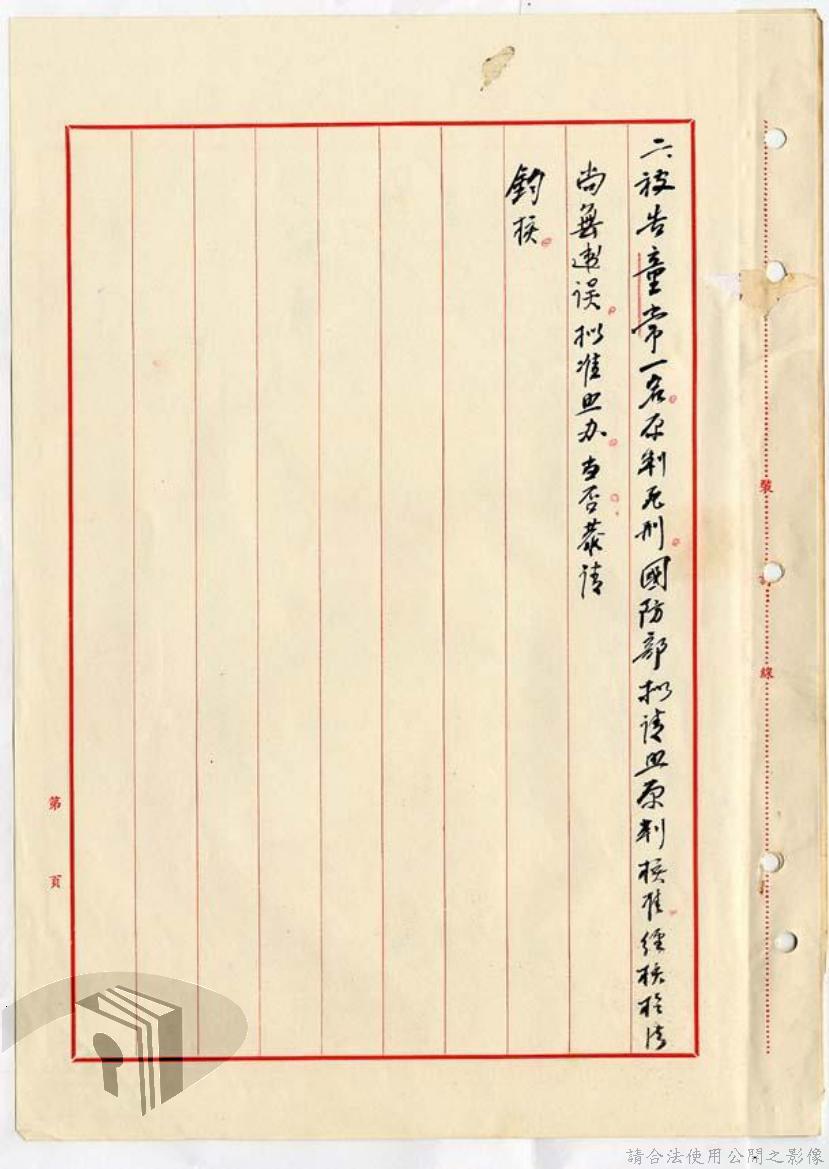 二、被告童常一名。原判死刑。國防部拟請照原判核准。經核於法
尚無違误。拟准照办。当否。恭请
鈞核。
裝
線
第 頁
請合法使用公開之影像